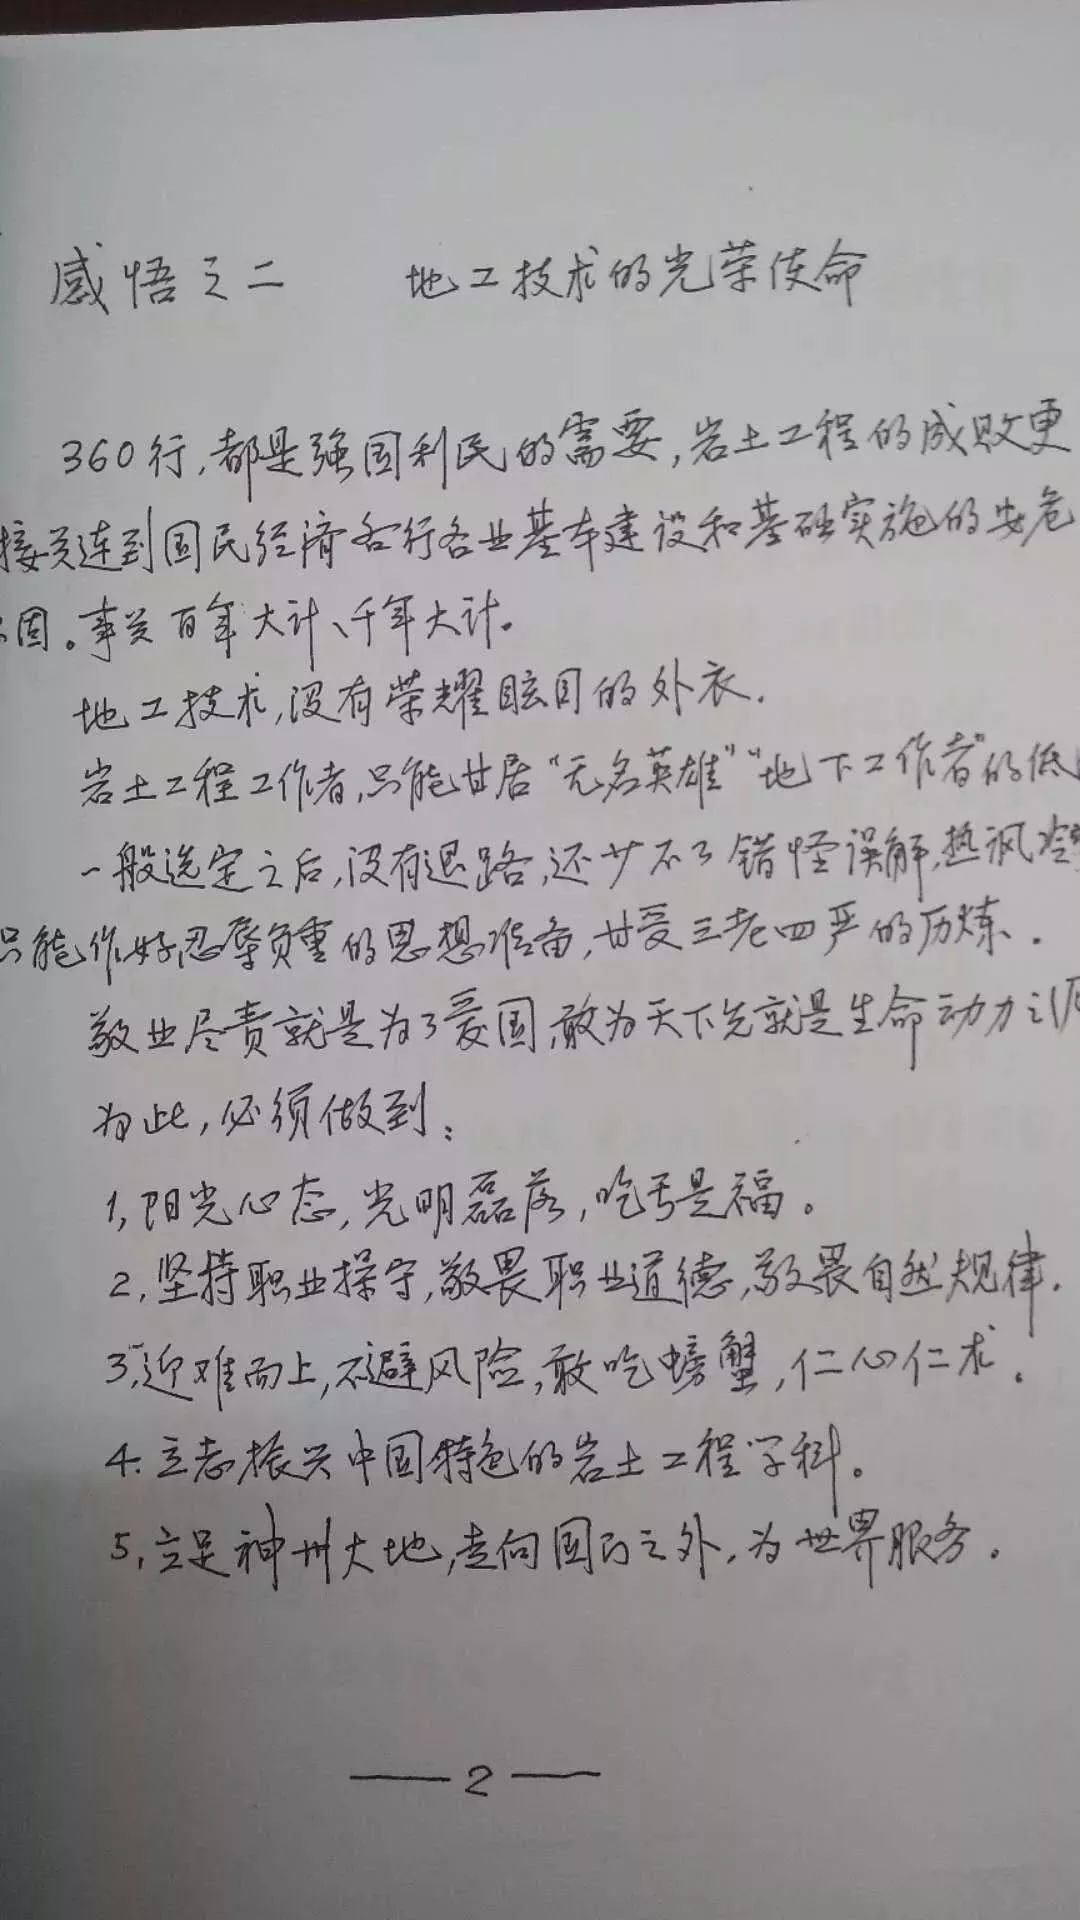 感悟之二 地工技术的光荣使命
360行,都是强国利民的需要,岩土工程的成败更
接关连到国民经济各行各业基本建设和基础实施的安危
固。事关百年大计、千年大计。
地工技术,没有荣耀眩目的外衣.
岩土工程工作者,只能甘居“无名英雄”“地下工作者”的低
一般选定之后,没有退路,还少不了错怪误解,热讽冷
只能作好忍辱负重的思想准备,甘受三老四严的历炼.
敬业尽责就是为了爱国,敢为天下先就是生命动力之
为此,必须做到:
1,阳光心态,光明磊落,吃亏是福。
2,坚持职业操守,敬畏职业道德,敬畏自然规律.
3,迎难而上,不避风险,敢吃螃蟹,仁心仁术.
4.立志振兴中国特色的岩土工程学科。
5,立足神州大地,走向国门之外,为世界服务.
——2——